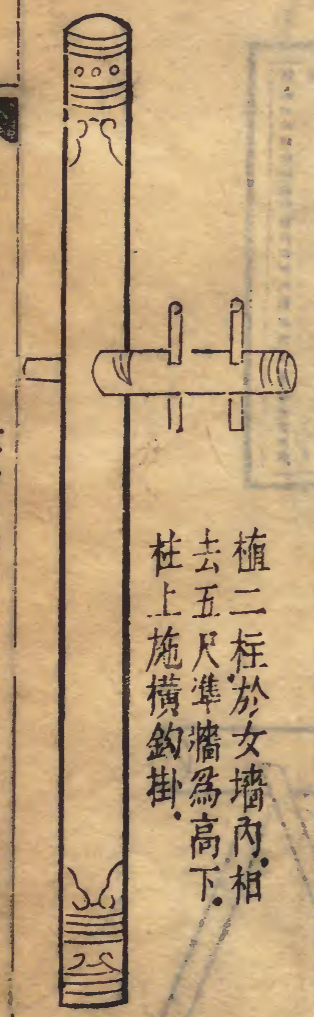 植二柱.於女墻内.相
去五尺準墻爲高下.
柱上施橫鈎掛.